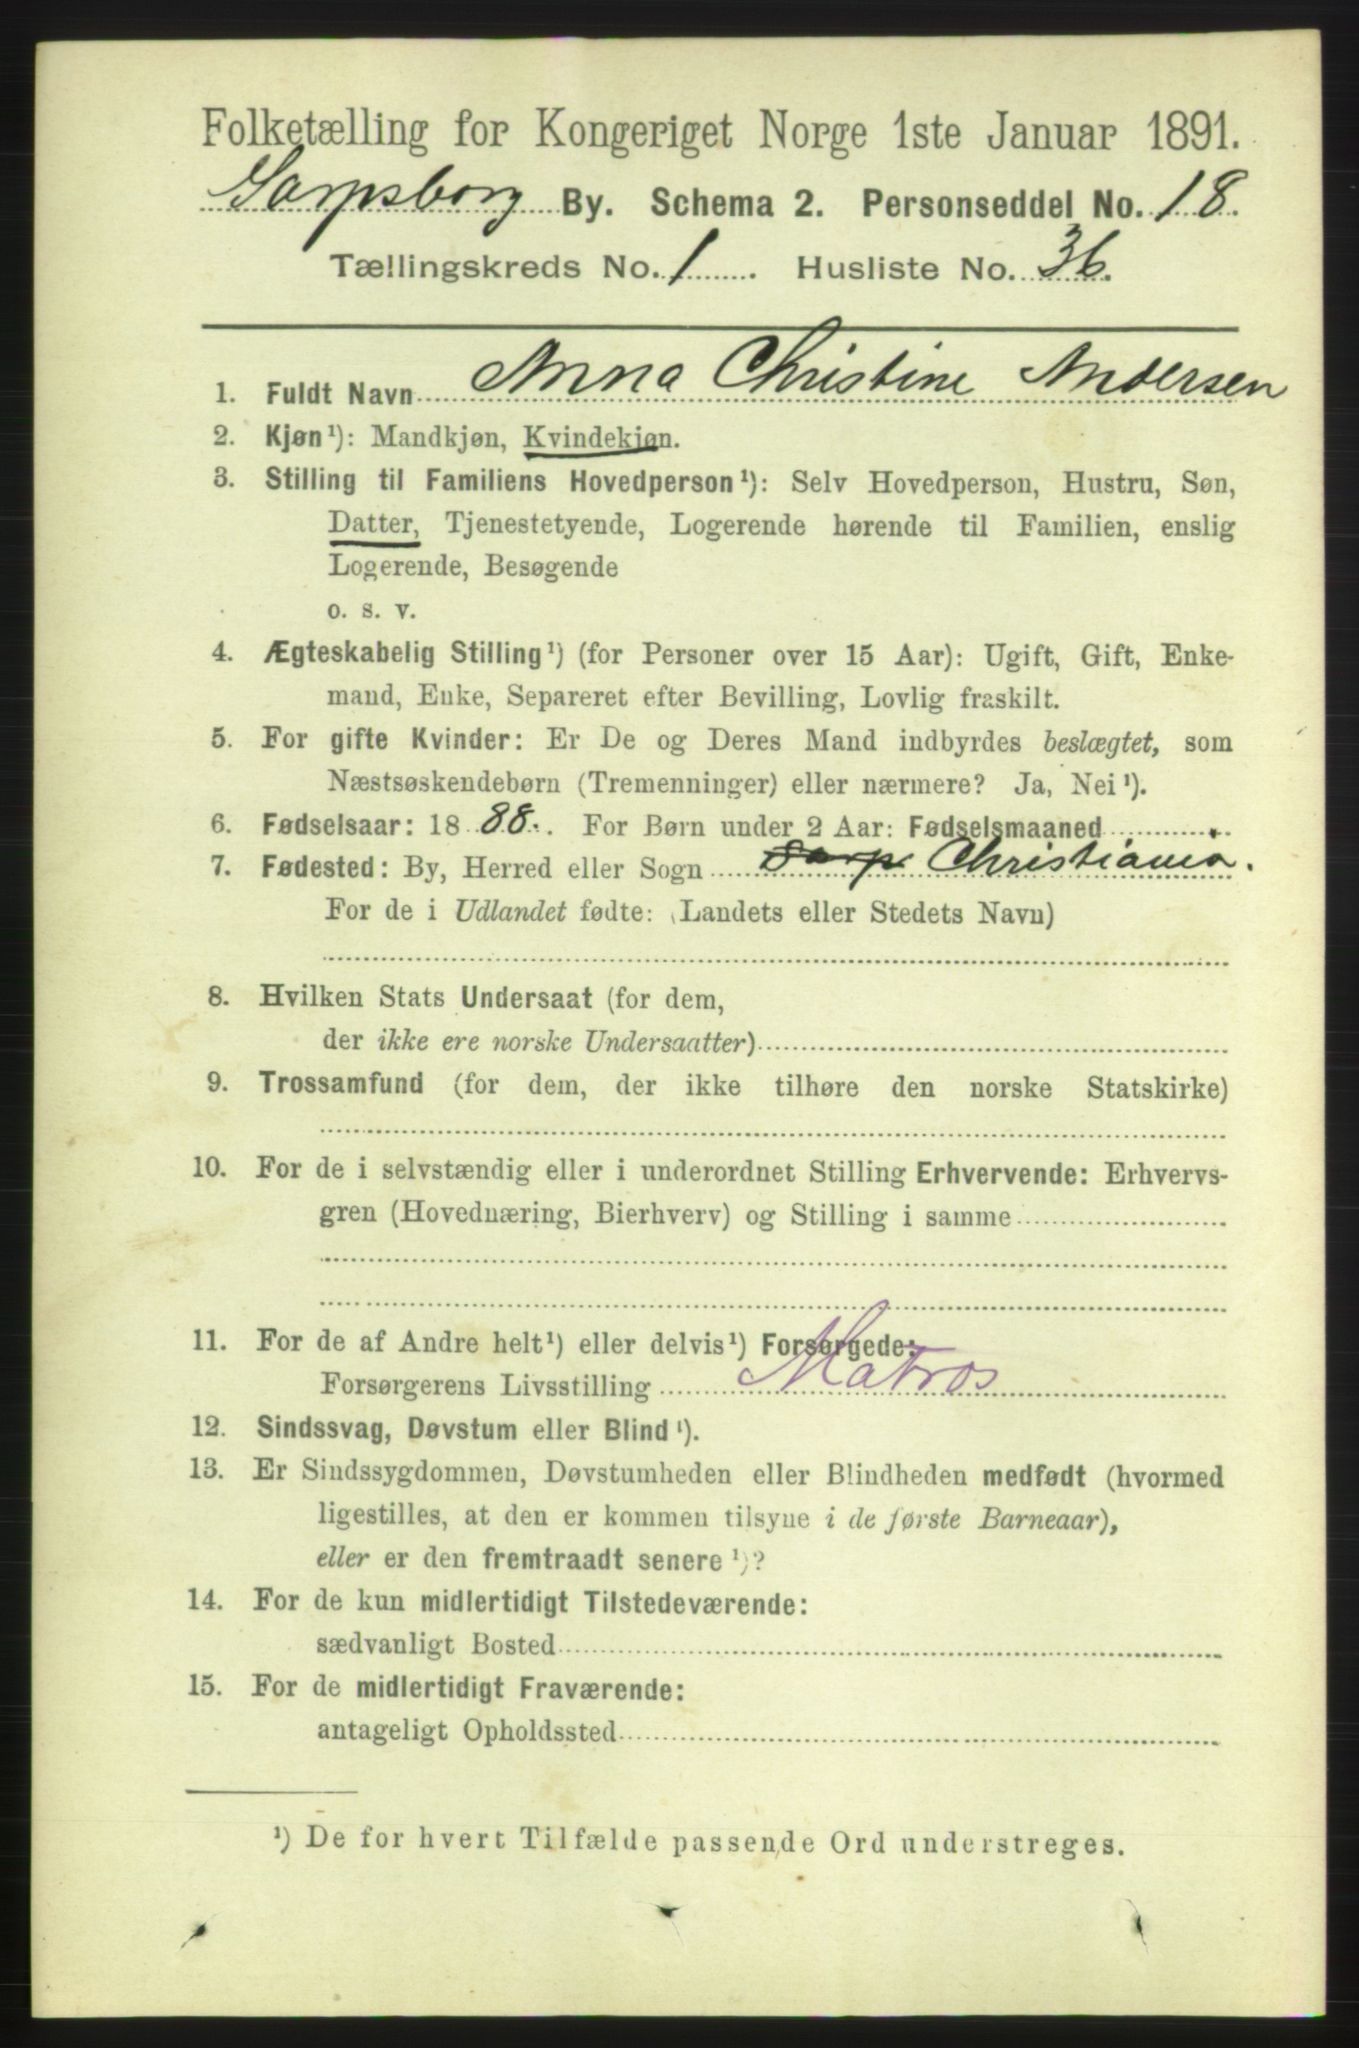 Folketælling for Kongeriget Norge 1ste Januar 1891.
Sarpsborg By. Schema 2. Personseddel No. 18.
Tællingskreds No. 1. Husliste No. 36.
1. Fuldt Navn Anna Christine Andersen
2. Kjøn¹): Mandkjøn, Kvindekjøn.
3. Stilling til Familiens Hovedperson¹): Selv Hovedperson, Hustru, Søn,
Datter, Tjenestetyende, Logerende hørende til Familien, enslig
Logerende, Besøgende
o. s. v.
4. Ægteskabelig Stilling¹) (for Personer over 15 Aar): Ugift, Gift, Enke-
mand, Enke, Separeret efter Bevilling, Lovlig fraskilt.
5. For gifte Kvinder: Er De og Deres Mand indbyrdes beslægtet, som
Næstsøskendebørn (Tremenninger) eller nærmere? Ja, Nei¹).
6. Fødselsaar: 1888. For Børn under 2 Aar: Fødselsmaaned
7. Fødested: By, Herred eller Sogn Sarp Christiania.
For de i Udlandet fødte: (Landets eller Stedets Navn)
8. Hvilken Stats Undersaat (for dem,
der ikke ere norske Undersaatter)
9. Trossamfund (for dem, der ikke tilhøre den norske Statskirke)
10. For de i selvstændig eller i underordnet Stilling Erhvervende: Erhvervs-
gren (Hovednæring, Bierhverv) og Stilling i samme
11. For de af Andre helt¹) eller delvis¹) Forsørgede:
Forsørgerens Livsstilling Matros
12. Sindssvag, Døvstum eller Blind¹).
13. Er Sindssygdommen, Døvstumheden eller Blindheden medfødt (hvormed
ligestilles, at den er kommen tilsyne i de første Barneaar),
eller er den fremtraadt senere¹)?
14. For de kun midlertidigt Tilstedeværende:
sædvanligt Bosted
15. For de midlertidigt Fraværende:
antageligt Opholdssted
¹) De for hvert Tilfælde passende Ord understreges.